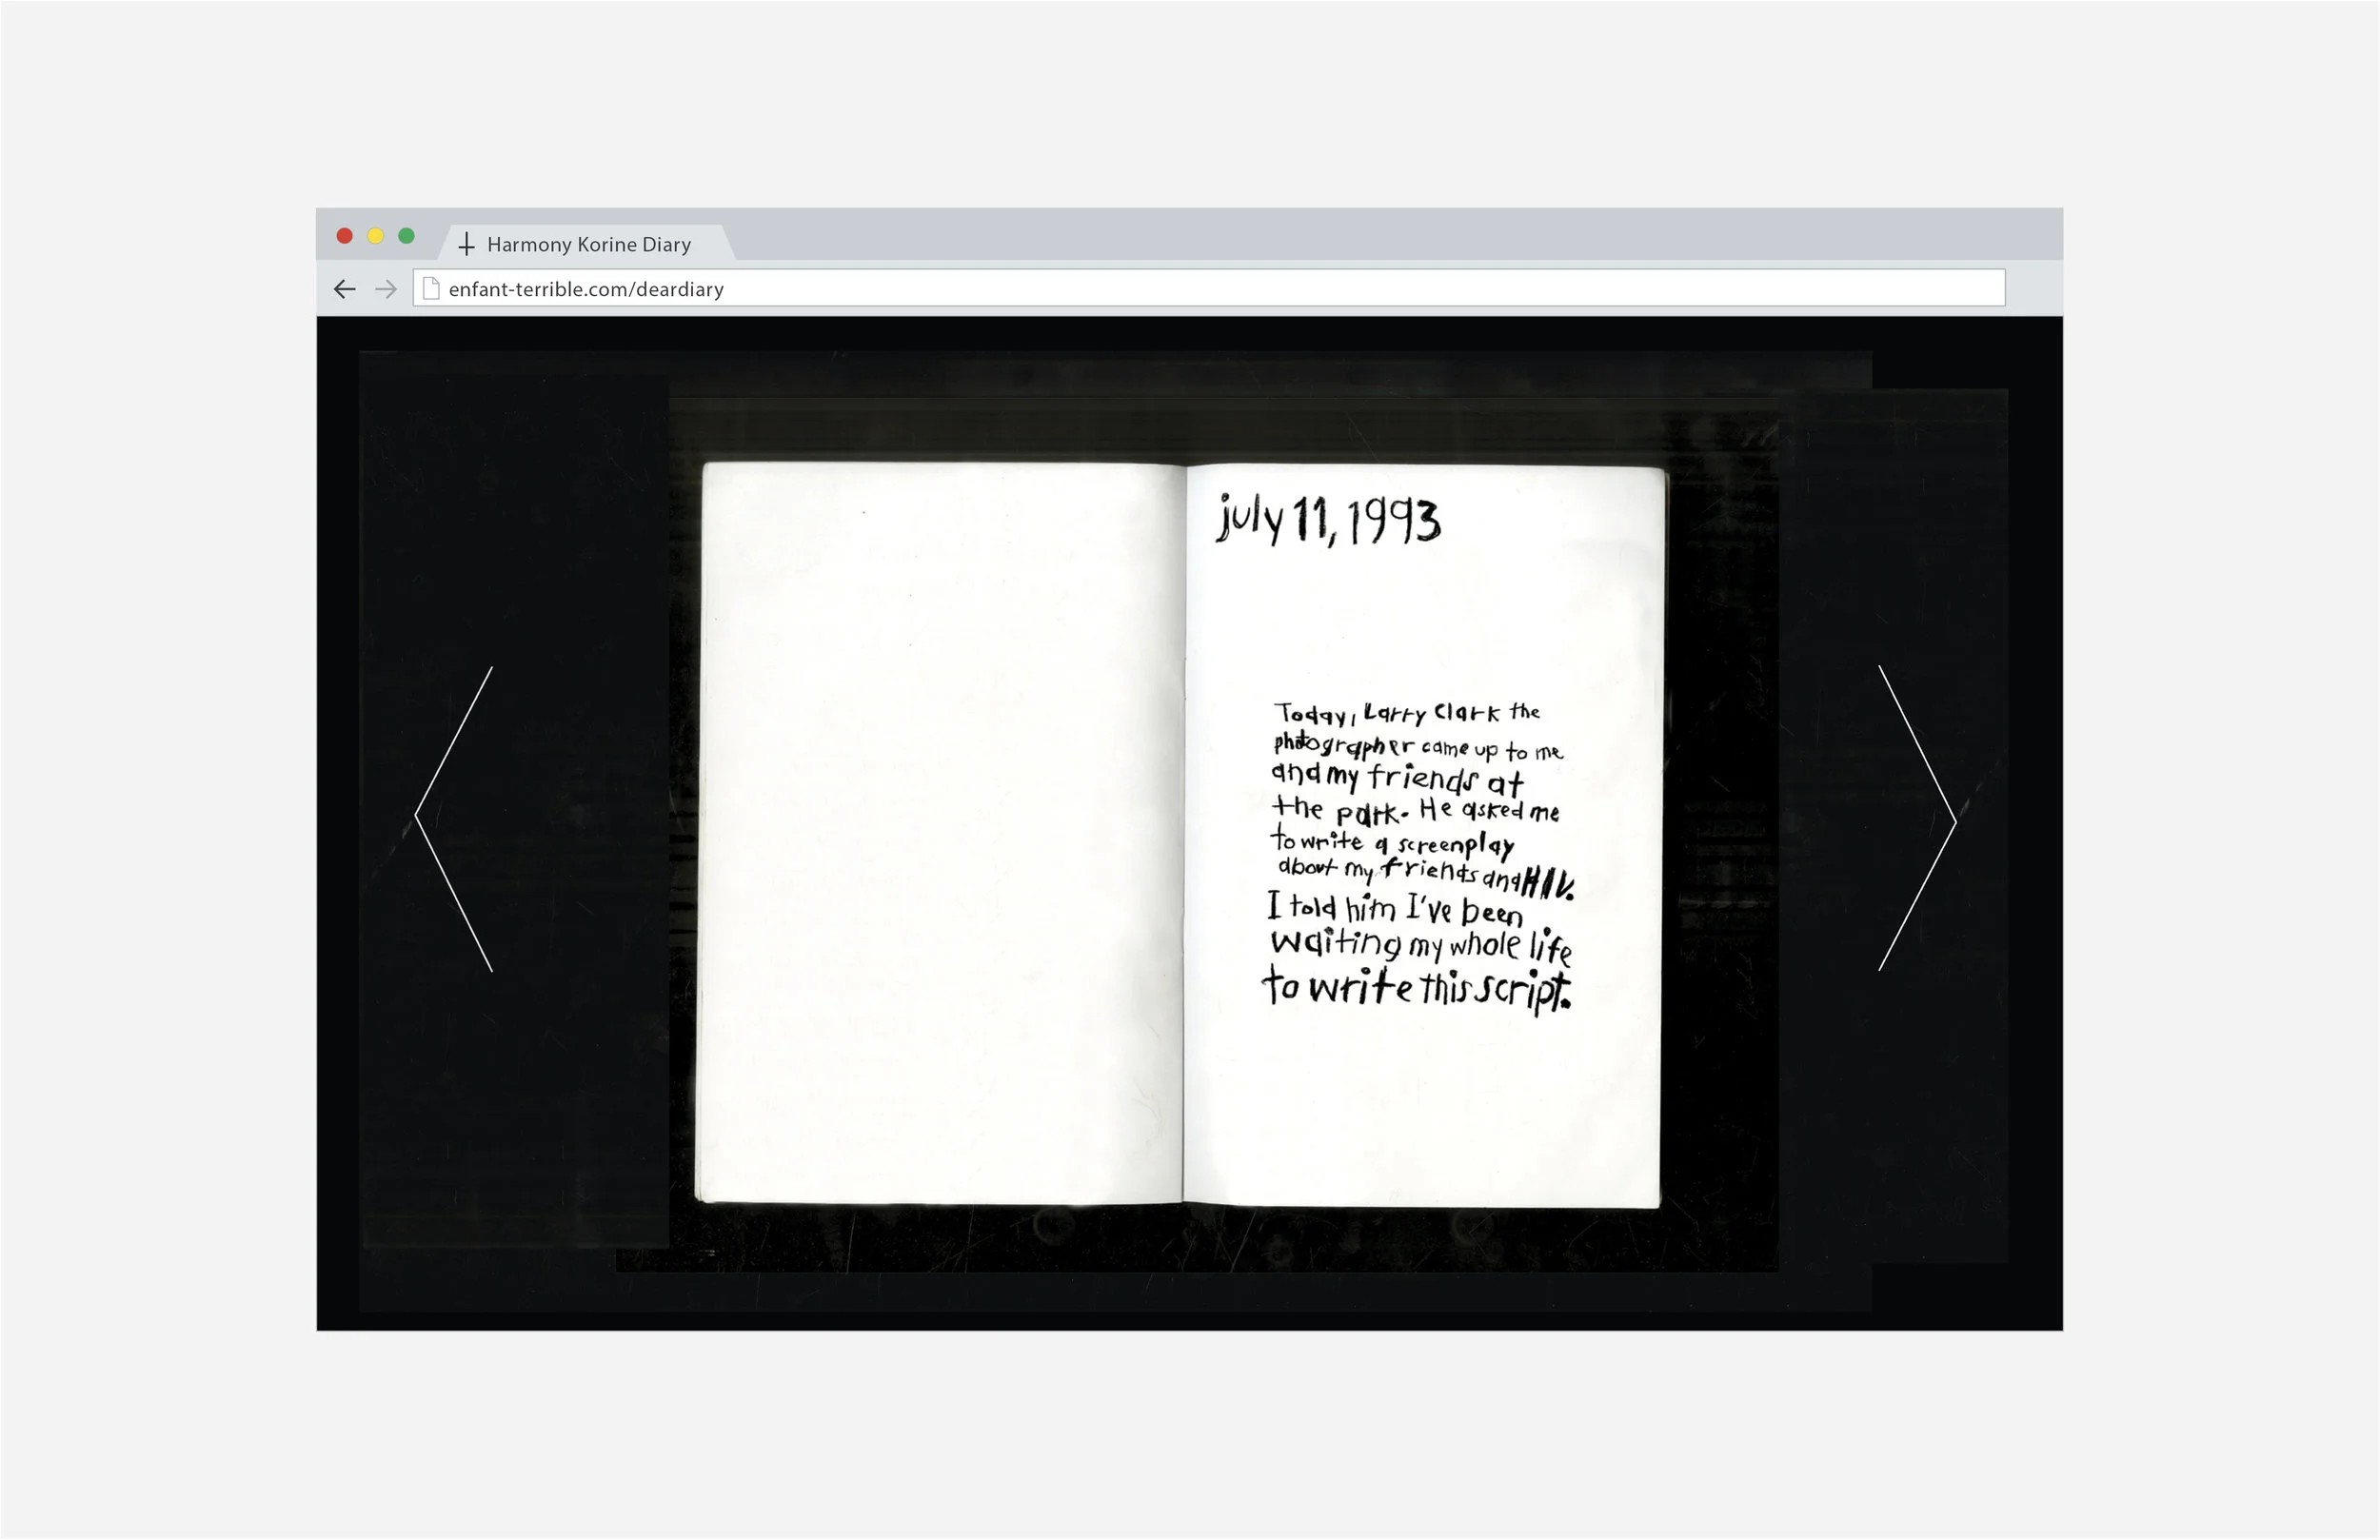 Harmony Korine Diary
enfant-terrible.com/deardiary
july 11, 1993
Today, Larry Clark the
photographer came up to me
and my friends at
the park. He asked me
to write a screenplay
about my friends and HIV.
I told him I've been
waiting my whole life
to write this script.